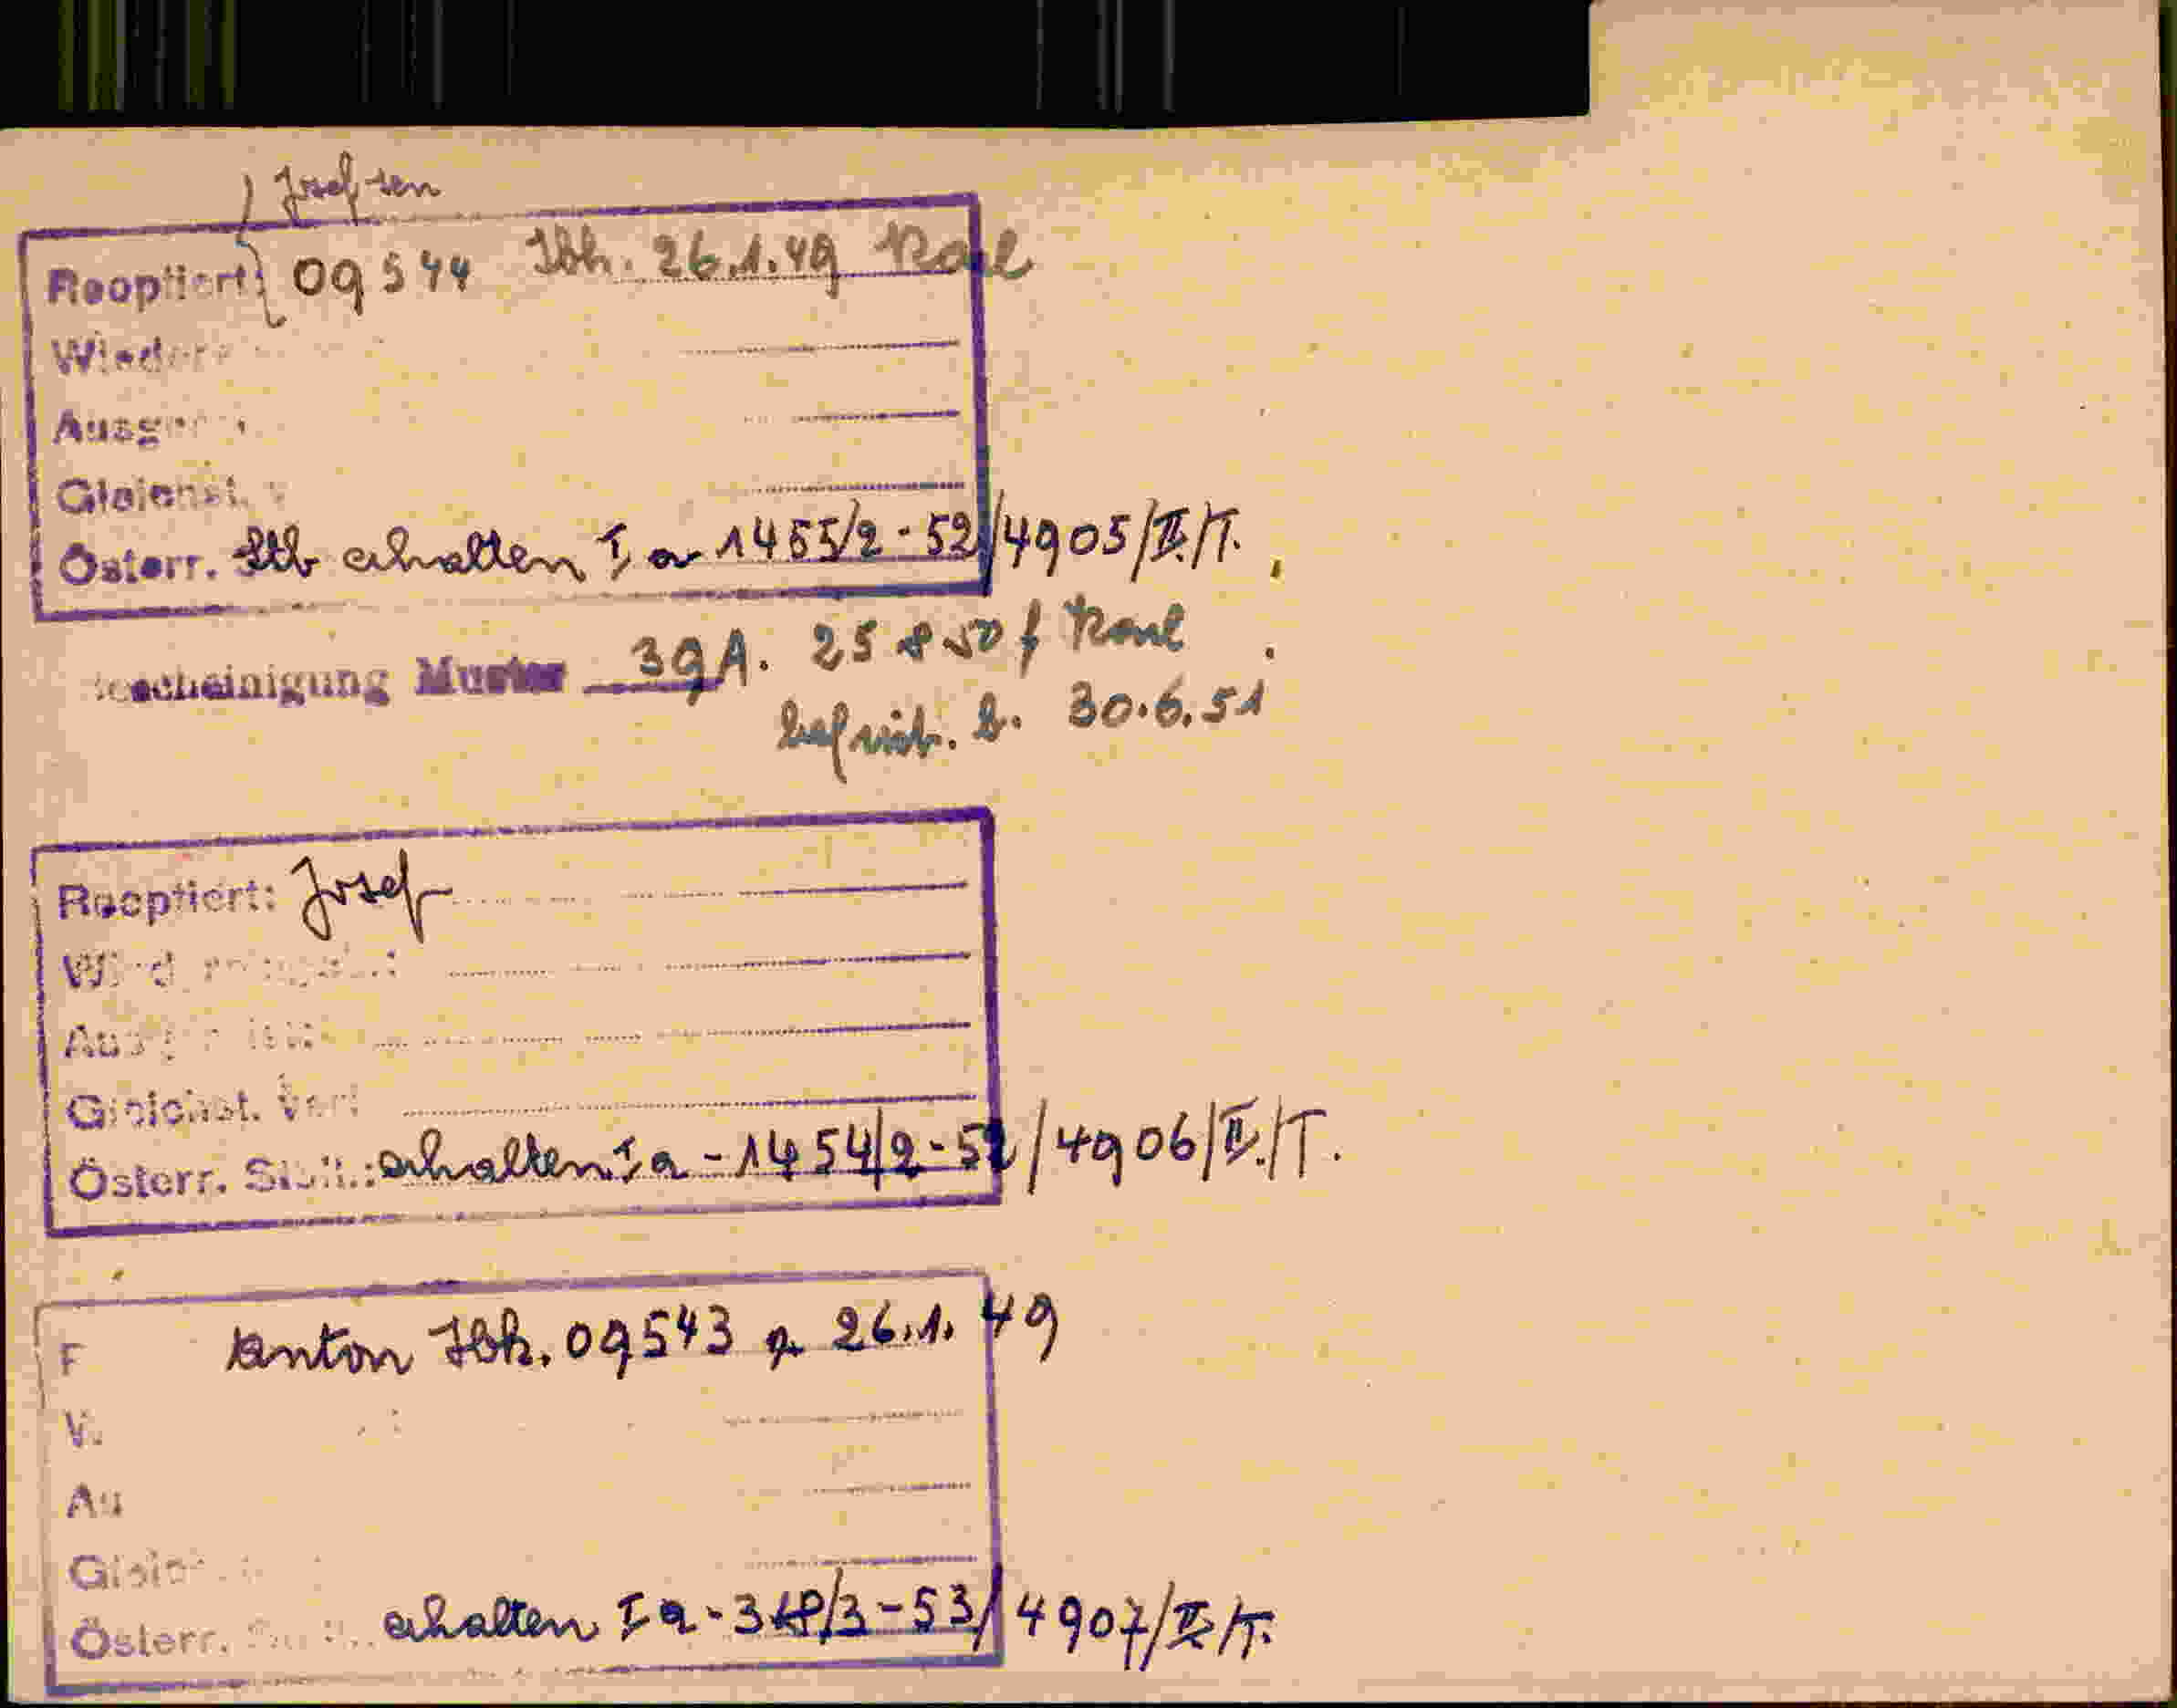 Josef sen
Reoptiert: 09544 Ibk. 26.1.49 Karl
Wieder
Ausg
Gleichst.
Österr. Stb erhalten I a 1455/2-52/4905/II./T.
bescheinigung Muster 39A. 25 8 50 f Karl
befrist. b. 30.6.51
Reoptiert: Josef
Wied
Ausg
Gleichst. Verf
Österr. Stb.: erhalten I a - 1454/2-52/4906/II./T.
Anton Ibk. 09543 26.1.49
Au
Gleich
Österr. erhalten I a - 348/3-53/4907/II/T.